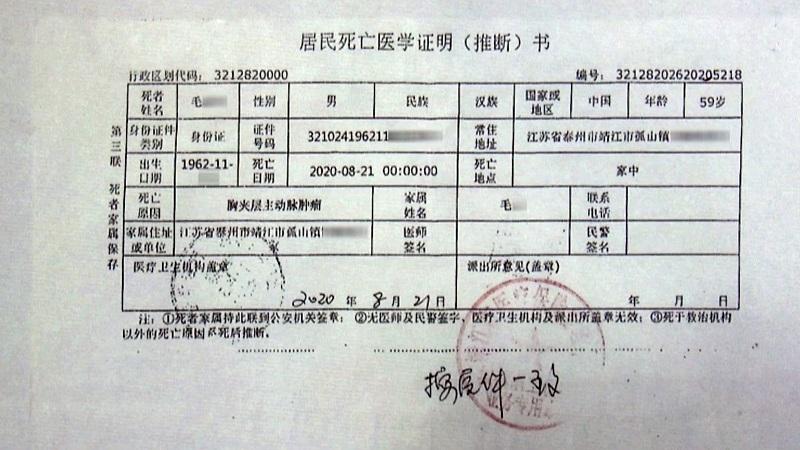 居民死亡医学证明（推断）书
行政区划代码： 3212820000 编号： 32128202620205218
死者姓名 毛 性别 男 民族 汉族 国家或地区 中国 年龄 59岁
身份证件类别 身份证 证件号码 321024196211 常住地址 江苏省泰州市靖江市孤山镇
出生日期 1962-11- 死亡日期 2020-08-21 00:00:00 死亡地点 家中
死亡原因 胸夹层主动脉肿瘤 家属姓名 毛 联系电话
家属住址或单位 江苏省泰州市靖江市孤山镇 医师签名 民警签名
医疗卫生机构盖章 派出所意见(盖章)
2020 年 8 月 21 日 年 月 日
第三联 死者家属保存
注：①死者家属持此联到公安机关签章；②无医师及民警签字、医疗卫生机构及派出所盖章无效；③死于救治机构
以外的死亡原因系死后推断。
按原件一致